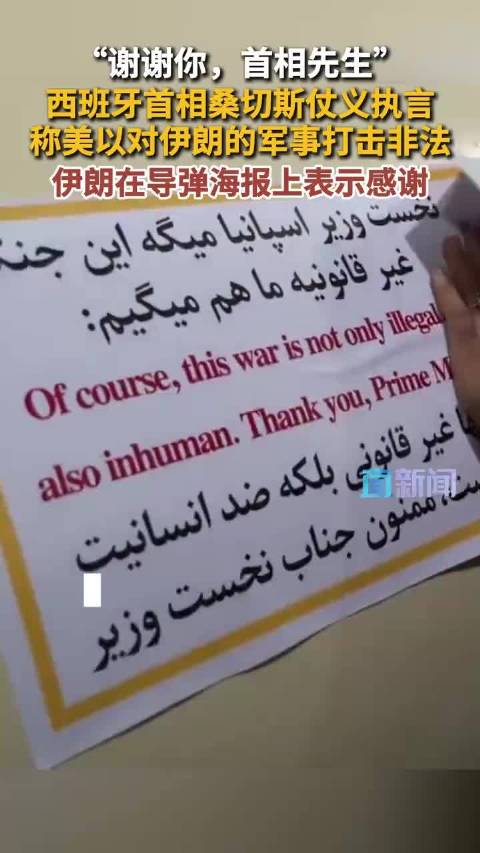 “谢谢你，首相先生”
西班牙首相桑切斯仗义执言
称美以对伊朗的军事打击非法
伊朗在导弹海报上表示感谢
نخست وزیر اسپانیا میگه این
غیر قانونیه ما هم میگیم:
Of course, this war is not only illegal
also inhuman. Thank you, Prime M
غیر قانونی بلکه ضد انسانیت
ممنون جناب نخست وزیر
直新闻